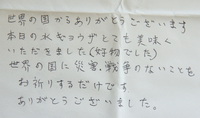 世界の国からありがとうございます
本日の水ギョウザとても美味く
いただきました(好物でした)
世界の国に災害、戦争のないことを
お祈りするだけです
ありがとうございました。